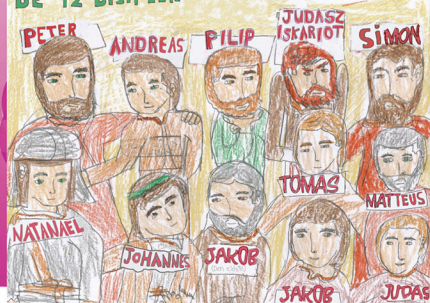 DE 12 DISIPLENE
PETER
ANDREAS
FILIP
JUDASZ
ISKARIOT
SIMON
TOMAS
MATTEUS
NATANAEL
JOHANNES
JAKOB
JAKOB
JUDAS